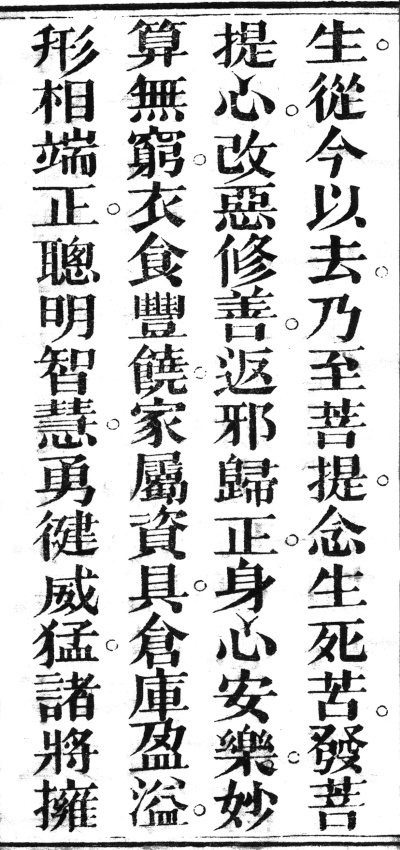 生。從今以去。乃至菩提。念生死苦。發菩
提心。改惡修善。返邪歸正。身心安樂。妙
算無窮。衣食豐饒。家屬資具。倉庫盈溢。
形相端正。聰明智慧。勇健威猛。諸將擁